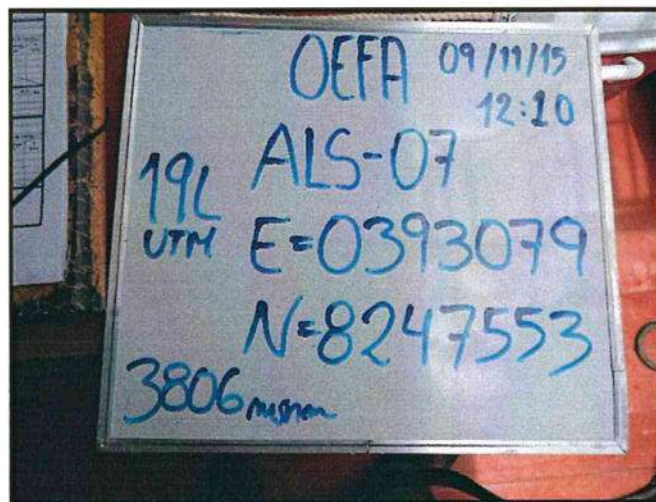 OEFA 09/11/15
12:10
ALS-07
19L
UTM
E=0393079
N=8247553
3806 msnm